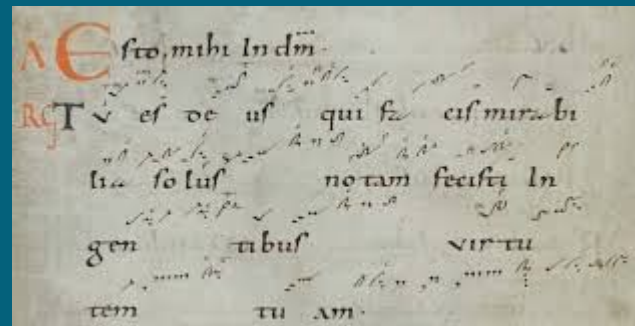 A Esto mihi In dm̅.
RG TV es de us qui fa cis mira bi
lia so lus no tam fecisti In
gen tibus vir tu
tem tu am.